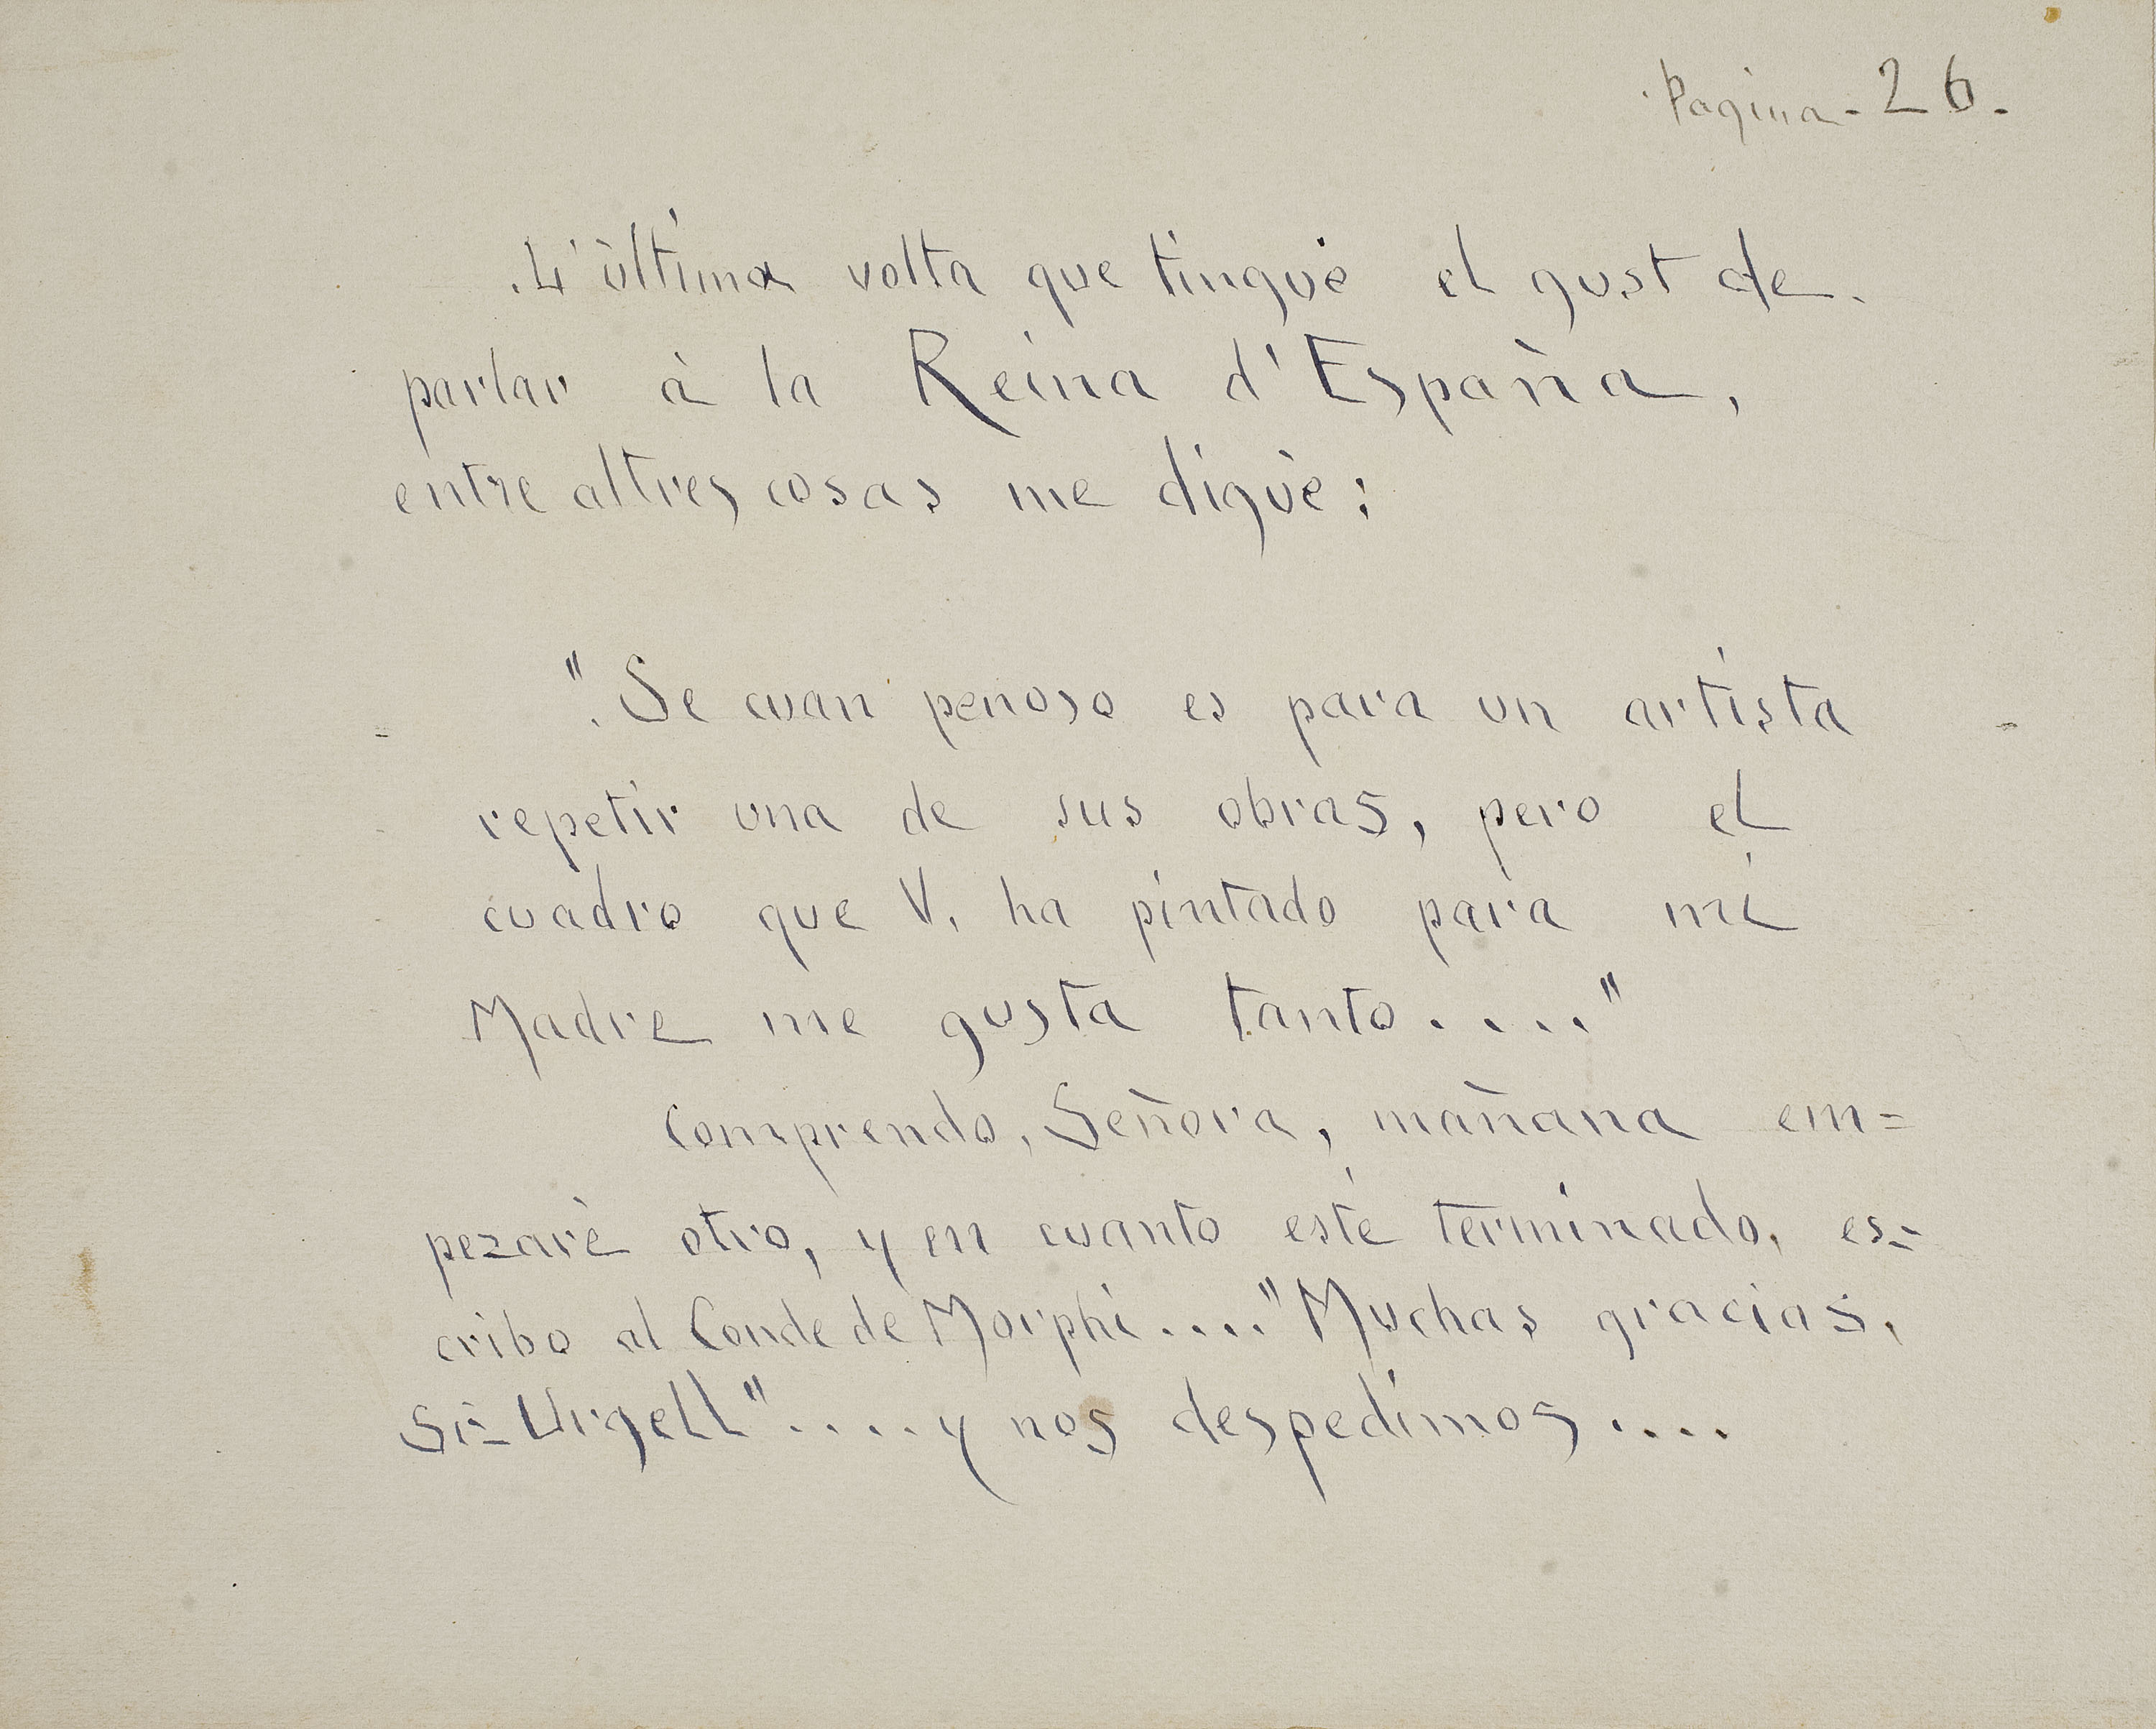 Pagina-26.
L'ùltima volta que tinguè el gust de
parlar à la Reina d'España,
entre altres cosas me diguè:
"Se cuan penoso es para un artista
repetir una de sus obras, pero el
cuadro que V. ha pintado para mi
Madre me gusta tanto...."
Comprendo, Señora, mañana em=
pezarè otro, y en cuanto estè terminado, es=
cribo al Conde de Morphi...."Muchas gracias,
Sr Urgell"....y nos despedimos....